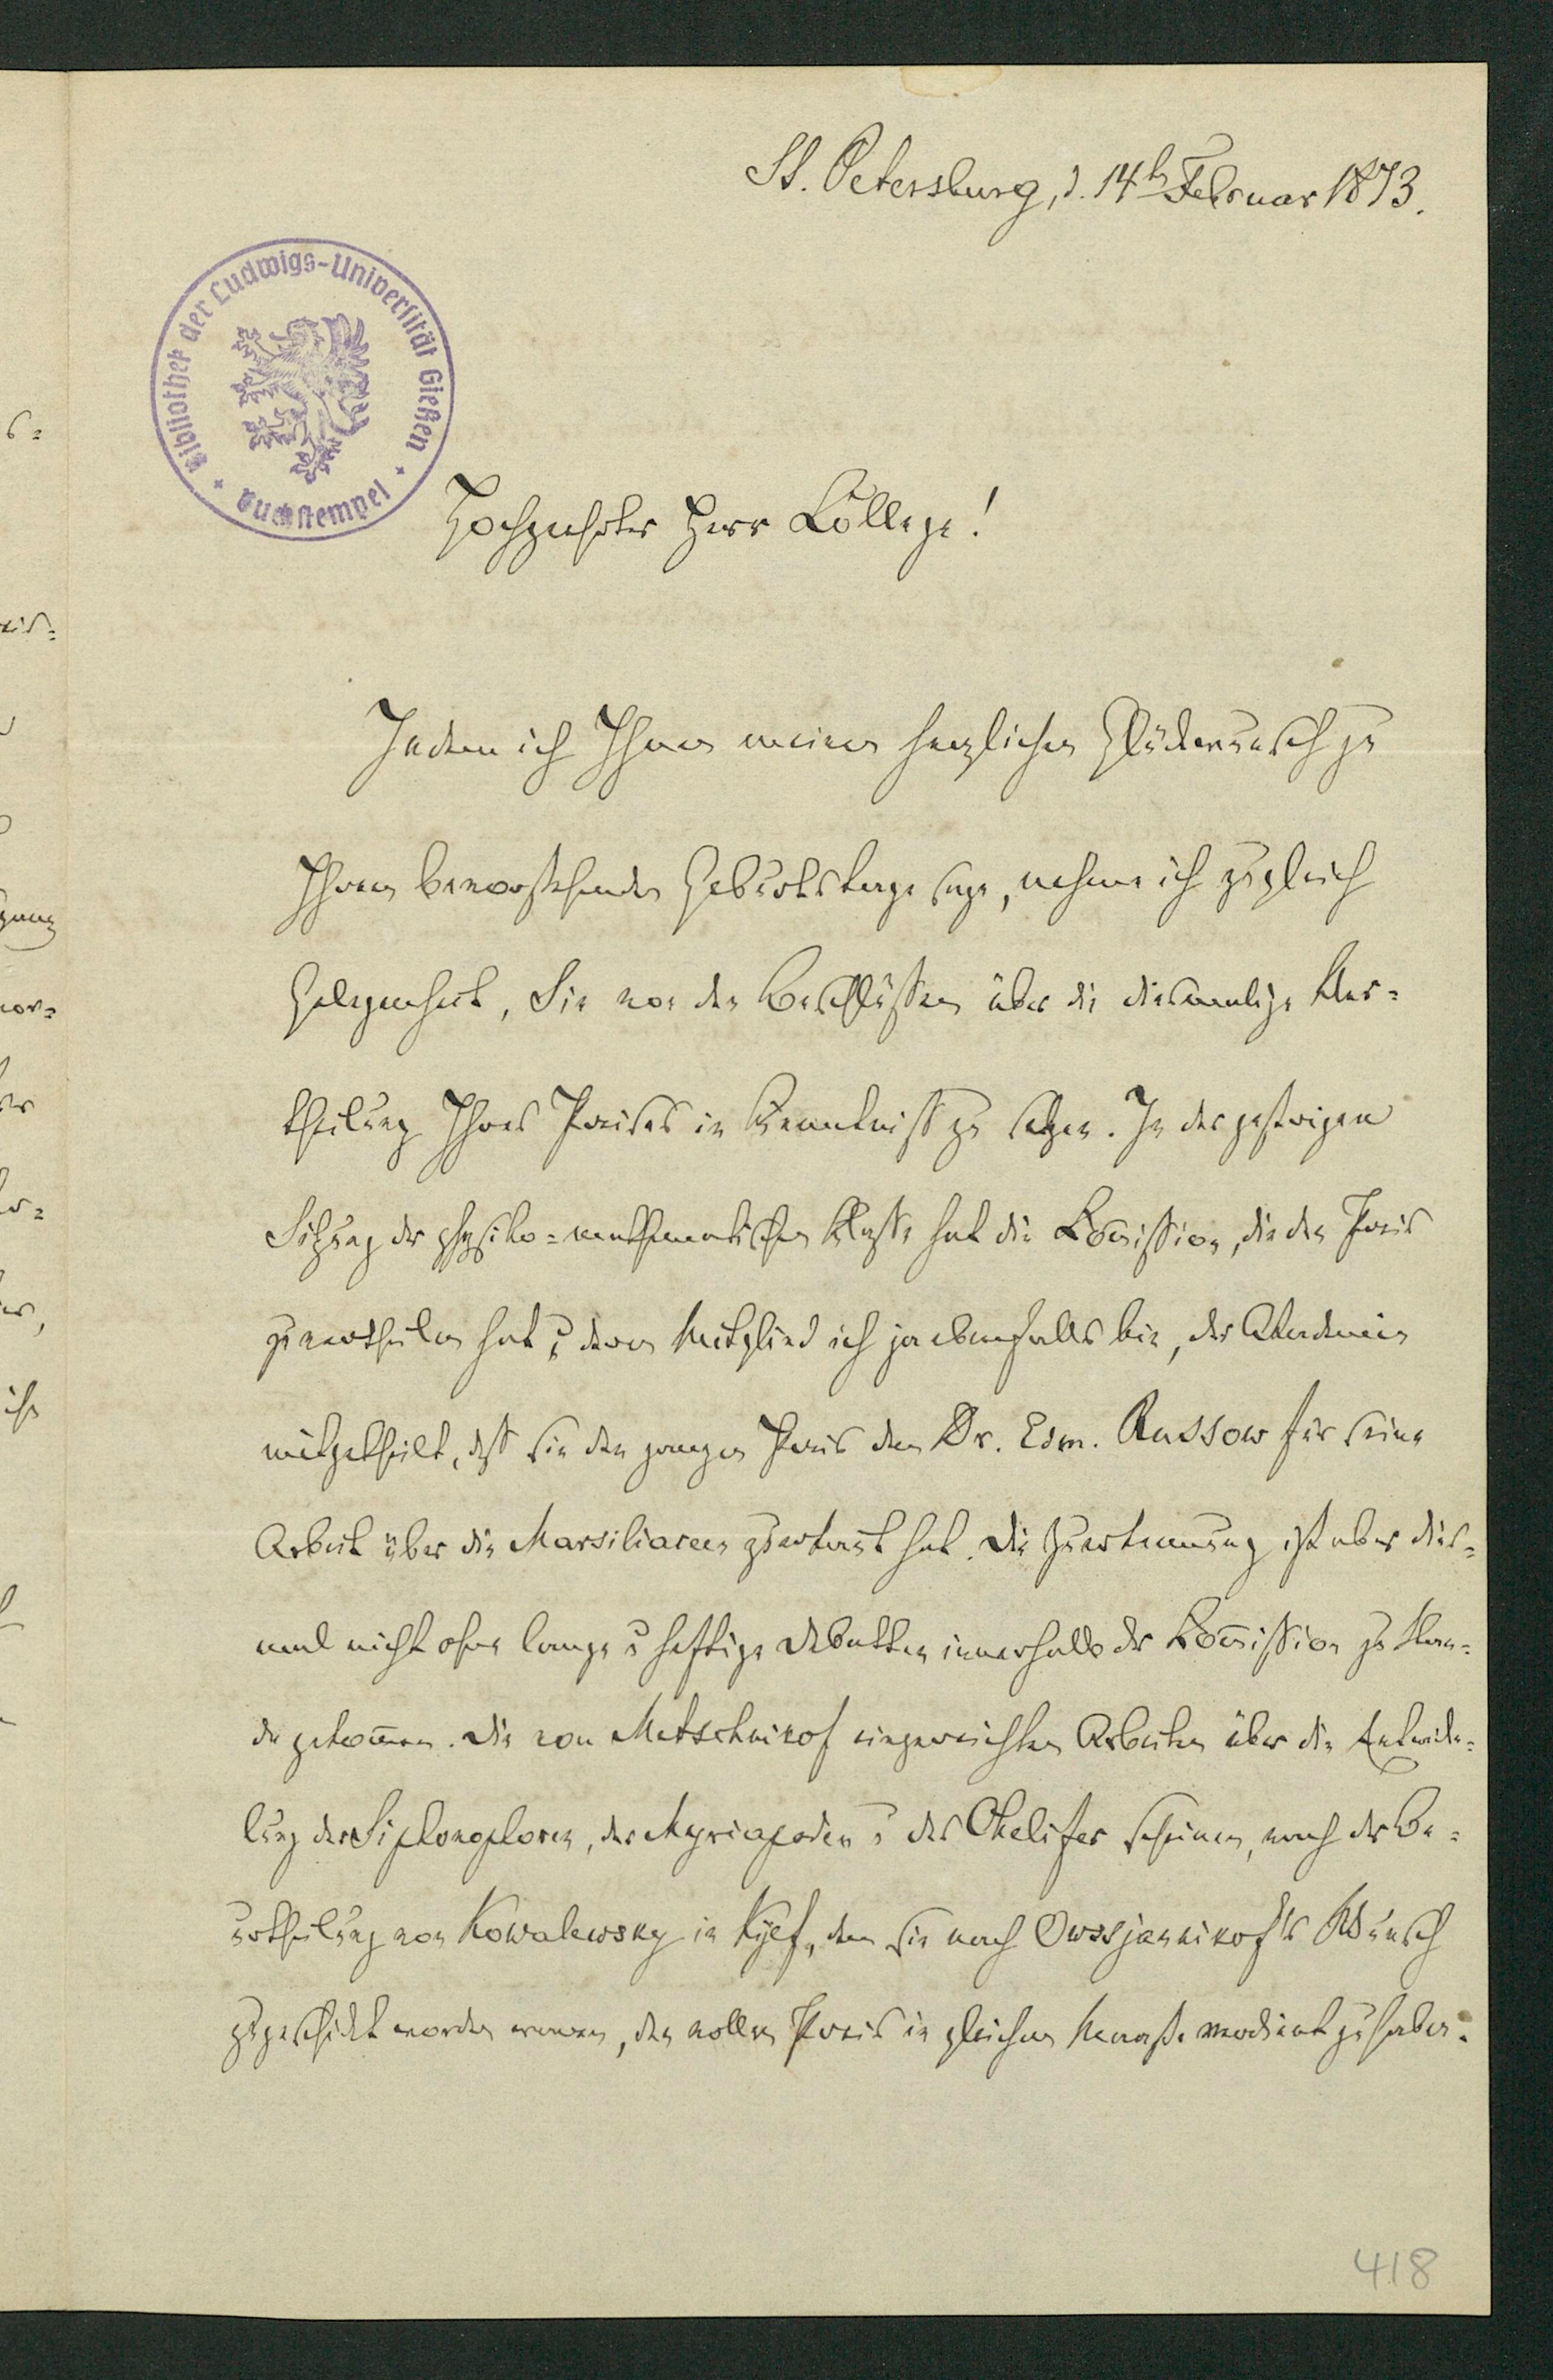 St. Petersburg, d. 14ten Februar 1873.
Bibliothek der Ludwigs-Universität Gießen
Buchstempel
Hochgeehrter Herr College!
Indem ich Ihnen meinen herzlichen Glückwunsch zu
Ihrem bevorstehenden Geburtstage sage, nehme ich zugleich
Gelegenheit, Sie von den Beschlüssen über die diesmalige Ver-
theilung Ihres Preises in Kenntniss zu setzen. In der gestrigen
Sitzung der physiko-mathematischen Klasse hat die Com̄ission, die den Preis
zu ertheilen hat u deren Mitglied ich ja ebenfalls bin, der Academie
mitgetheilt, dass sie den ganzen Preis dem Dr. Edm. Russow für seine
Arbeit über die Marsiliaceen zuerkannt hat. Die Zuerkennung ist aber dies-
mal nicht ohne lange u heftige Debatten innerhalb der Com̄ission zu Stan-
de gekom̄en. Die von Metschnikof eingereichten Arbeiten über die Entwicke-
lung der Siphonophoren, der Myriapoden u des Chelifer scheinen, nach der Be-
urtheilung von Kowalewsky in Kijef, dem sie nach Owssjannikof's Wunsch
zugeschickt worden waren, den vollen Preis in gleichem Maasse verdient zu haben.
418